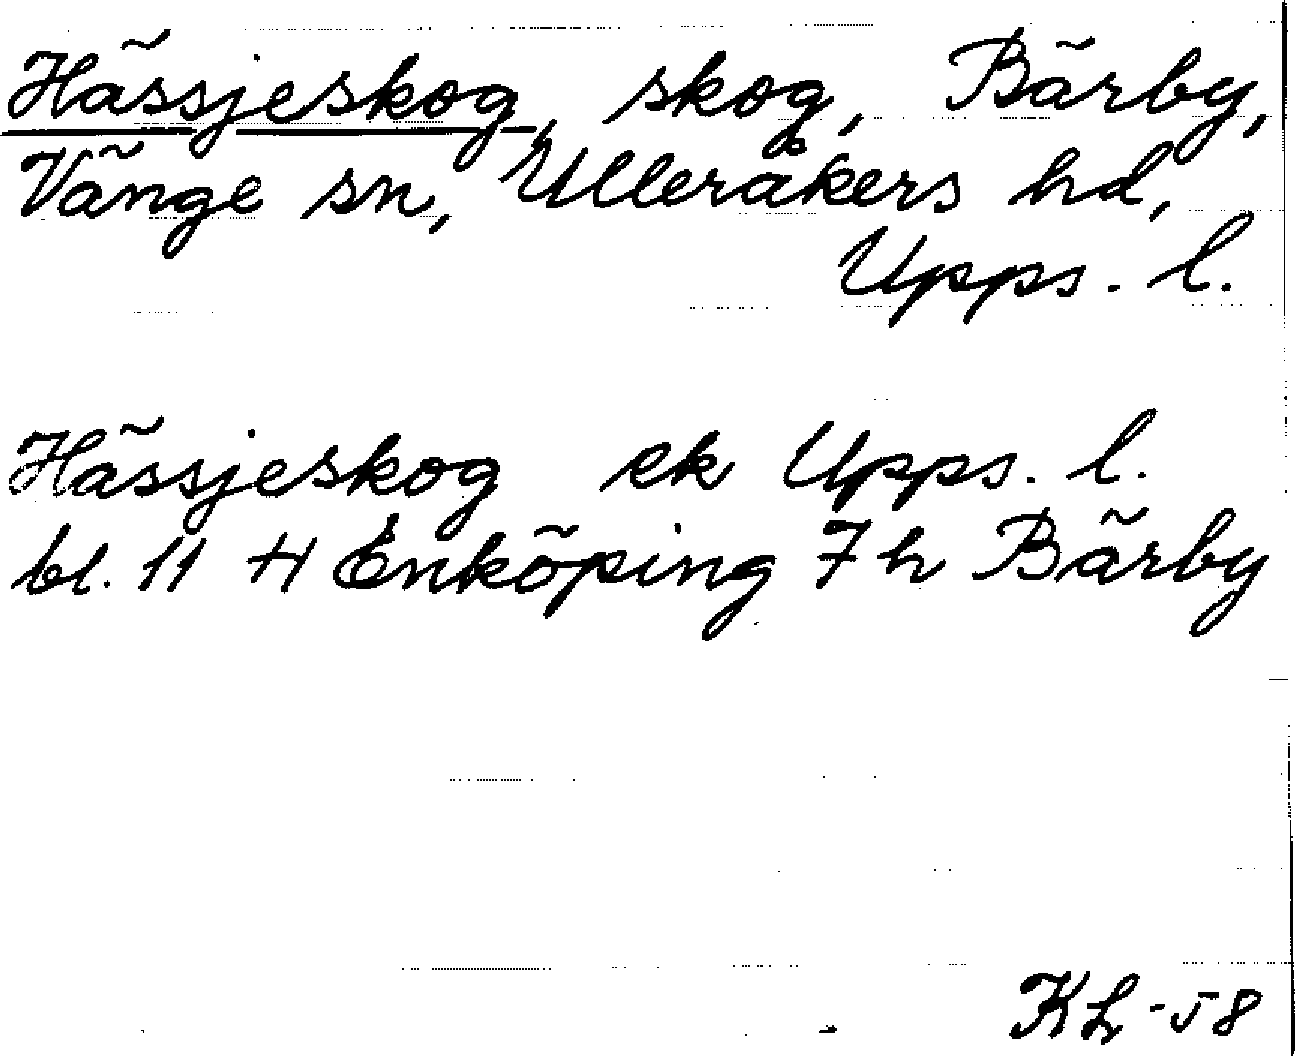 Hässjeskog, skog, Bärby,
Vänge sn, Ulleråkers hd,
Upps. l.
Hässjeskog ek Upps. l.
bl. 11 H Enköping 7 h Bärby
KL -58